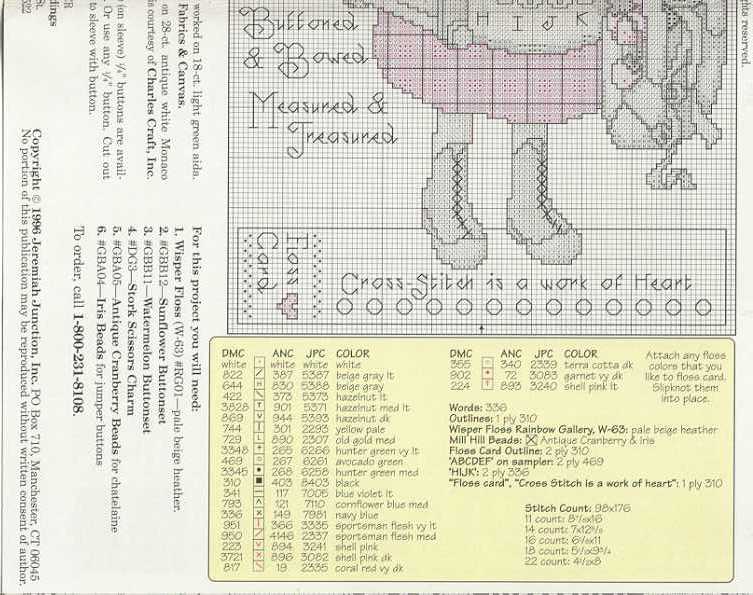 Buttoned
& Bowed
Measured &
Treasured
H I J K
Floss
Card
Cross-Stitch is a work of Heart
DMC ANC JPC COLOR
white white white white
822 387 5387 beige gray lt
644 830 5388 beige gray
422 373 5373 hazelnut lt
3828 901 5371 hazelnut med lt
869 944 5393 hazelnut dk
744 301 2293 yellow pale
729 890 2307 old gold med
3348 265 6266 hunter green vy lt
469 267 6261 avocado green
3345 268 6258 hunter green med
310 403 8403 black
341 117 7005 blue violet lt
793 121 7110 cornflower blue med
336 149 7981 navy blue
951 366 3335 sportsman flesh vy lt
950 4146 2337 sportsman flesh med
223 894 3241 shell pink
3721 896 3082 shell pink dk
817 19 2335 coral red vy dk
DMC ANC JPC COLOR
355 340 2339 terra cotta dk
902 72 3083 garnet vy dk
224 893 3240 shell pink lt
Attach any floss
colors that you
like to floss card.
Slipknot them
into place.
Words: 336
Outlines: 1 ply 310
Wisper Floss Rainbow Gallery, W-63: pale beige heather
Mill Hill Beads: Antique Cranberry & Iris
Floss Card Outline: 2 ply 310
'ABCDEF' on sampler: 2 ply 469
'HIJK': 2 ply 336
"Floss card", "Cross Stitch is a work of heart": 1 ply 310
Stitch Count: 98x176
11 count: 8⅞x16
14 count: 7x12⅝
16 count: 6⅛x11
18 count: 5½x9¾
22 count: 4½x8
worked on 18-ct. light green aida.
Fabrics & Canvas.
on 28-ct. antique white Monaco
is courtesy of Charles Craft, Inc.
(on sleeve) ¼" buttons are avail-
Or use any ¼" button. Cut out
to sleeve with button.
For this project you will need:
1. Wisper Floss (W-63) #RG01—pale beige heather.
2. #GBB12—Sunflower Buttonset
3. #GBB11—Watermelon Buttonset
4. #DG3—Stork Scissors Charm
5. #GBA05—Antique Cranberry Beads for chatelaine
6. #GBA04—Iris Beads for jumper buttons
To order, call 1-800-231-8108.
Copyright © 1996 Jeremiah Junction, Inc. PO Box 710, Manchester, CT 06045
No portion of this publication may be reproduced without written consent of author.
dings
St.
ghts reserved.